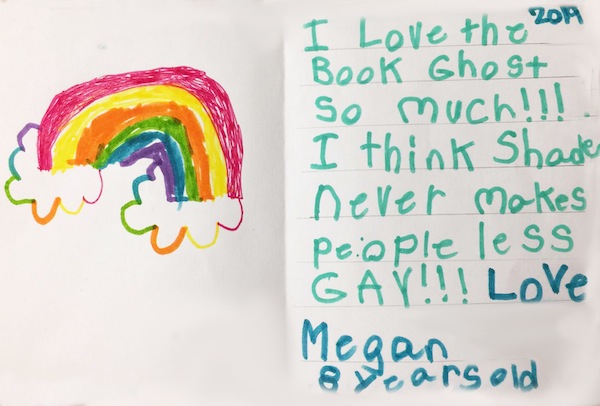 2019
I Love the
Book Ghost
so much!!!
I think Shade
never makes
people less
GAY!!! Love
Megan
8 years old